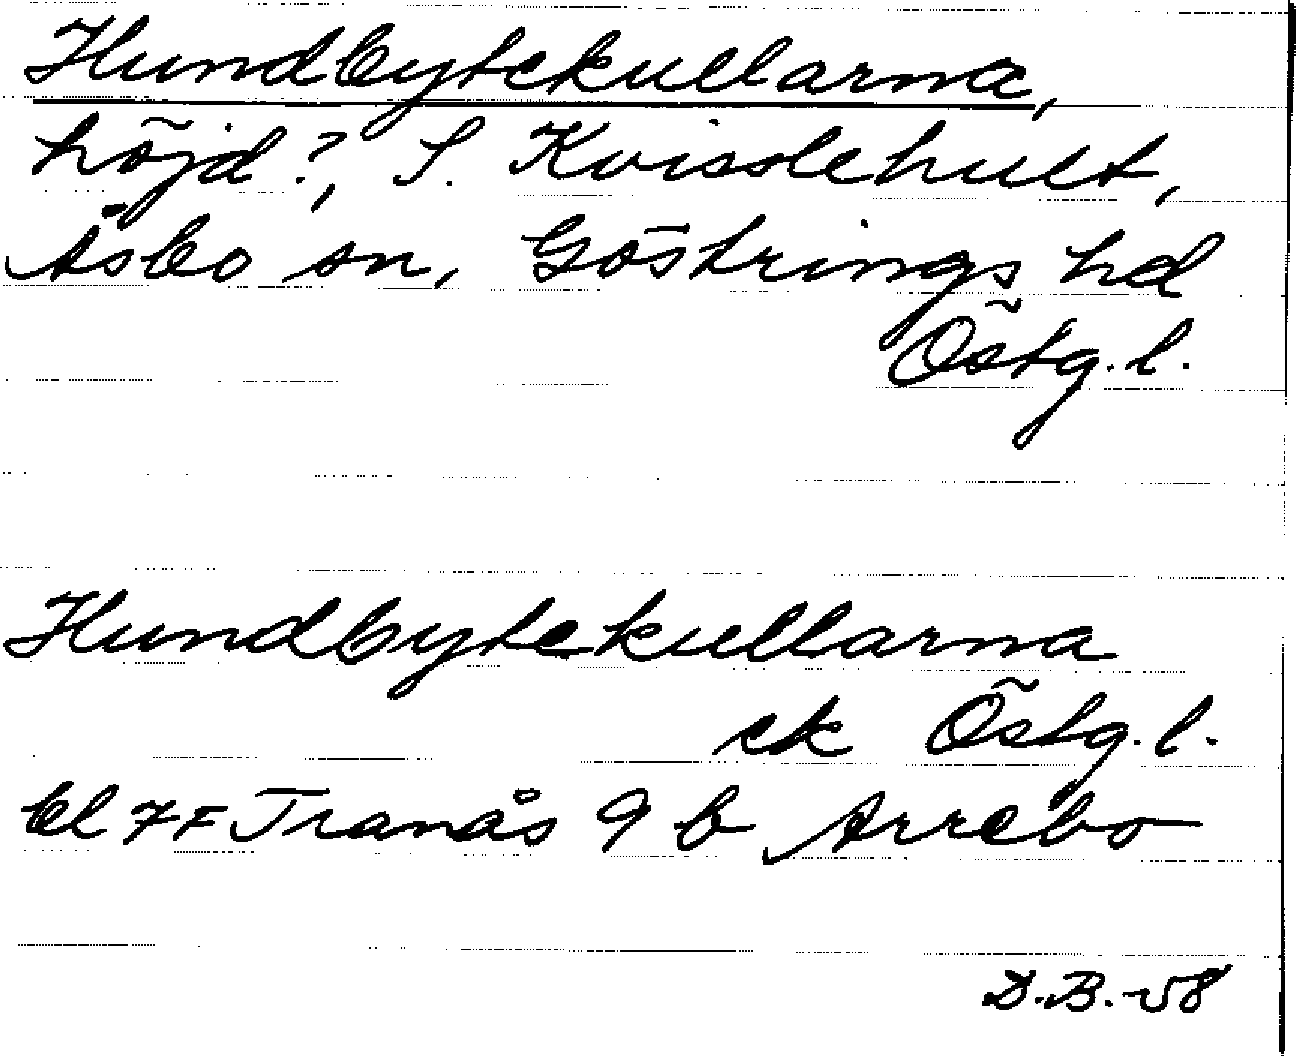 Hundbytekullarna,
höjd?, S. Kvisslehult,
Åsbo sn, Göstrings hd
Östg. l.
Hundbytekullarna
ek Östg. l.
bl 7F Tranås 9 b Arrebo
D.B.-58